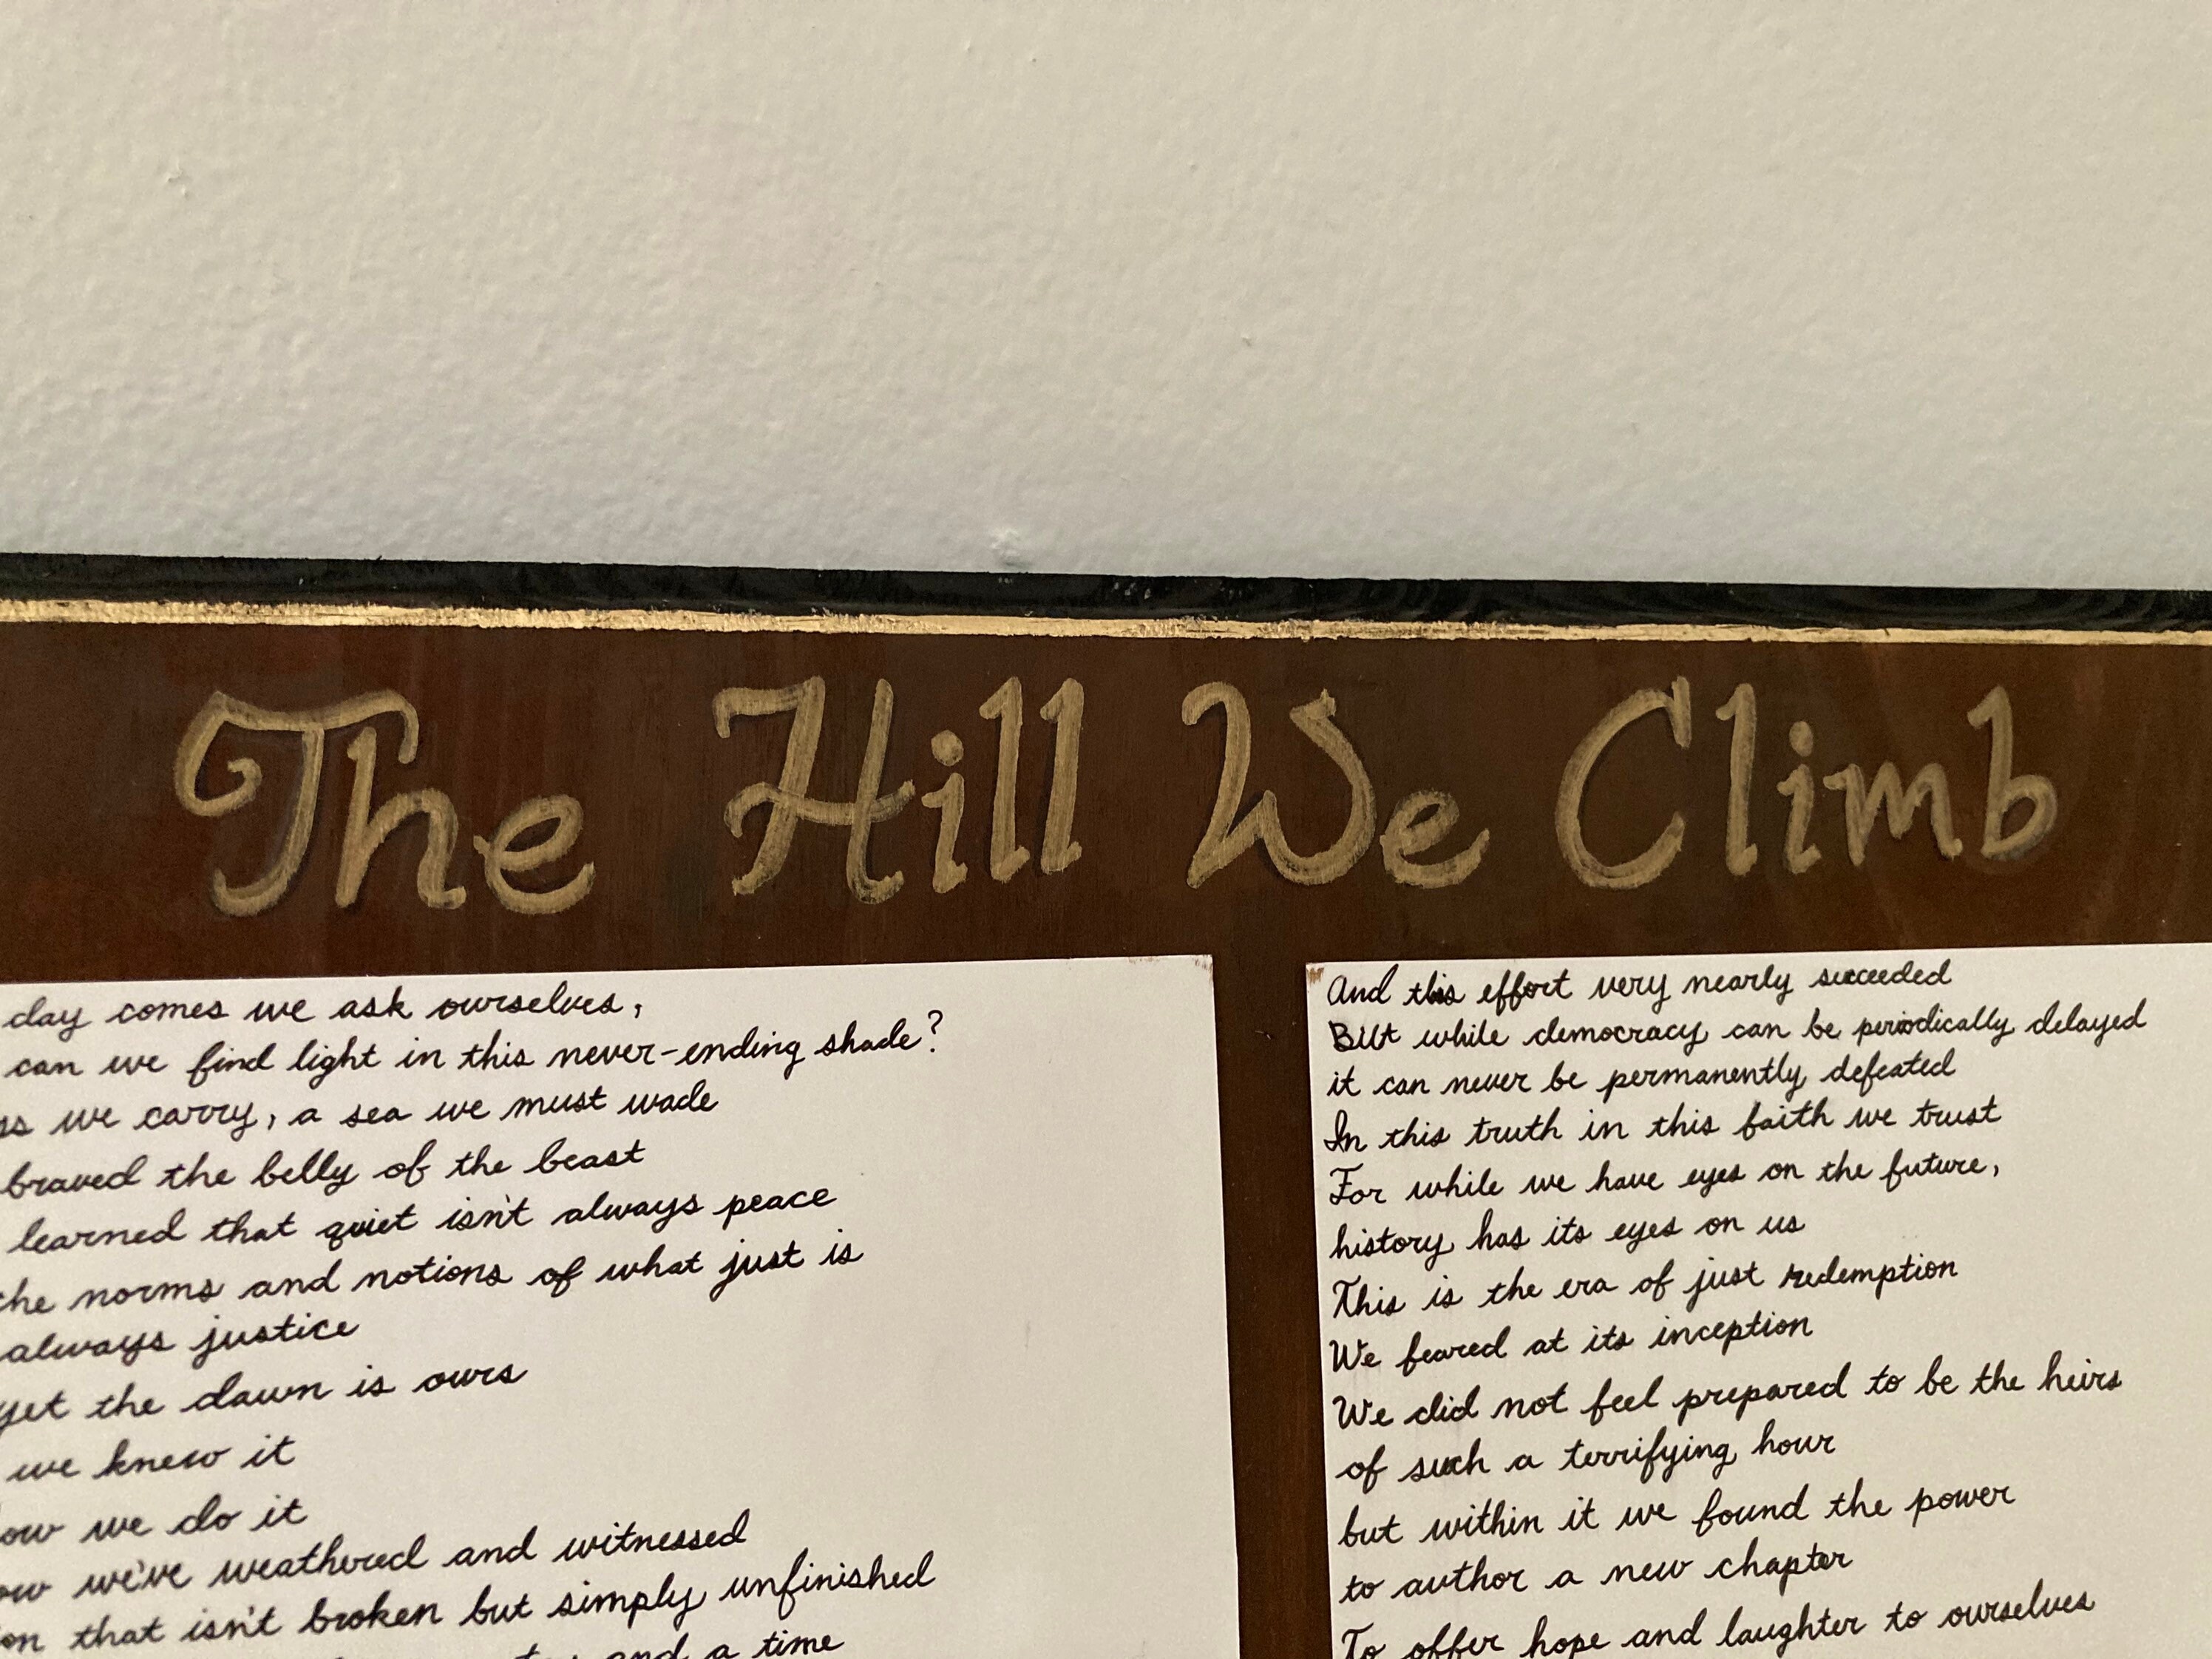 The Hill We Climb
day comes we ask ourselves,
can we find light in this never-ending shade?
we carry, a sea we must wade
braved the belly of the beast
learned that quiet isn't always peace
the norms and notions of what just is
always justice
yet the dawn is ours
we knew it
we do it
we've weathered and witnessed
that isn't broken but simply unfinished
and a time
And this effort very nearly succeeded
But while democracy can be periodically delayed
it can never be permanently defeated
In this truth in this faith we trust
For while we have eyes on the future,
history has its eyes on us
This is the era of just redemption
We feared at its inception
We did not feel prepared to be the heirs
of such a terrifying hour
but within it we found the power
to author a new chapter
To offer hope and laughter to ourselves